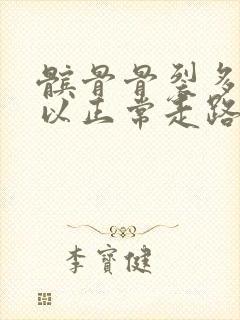 髌骨骨裂多
以正常走路
李寶健